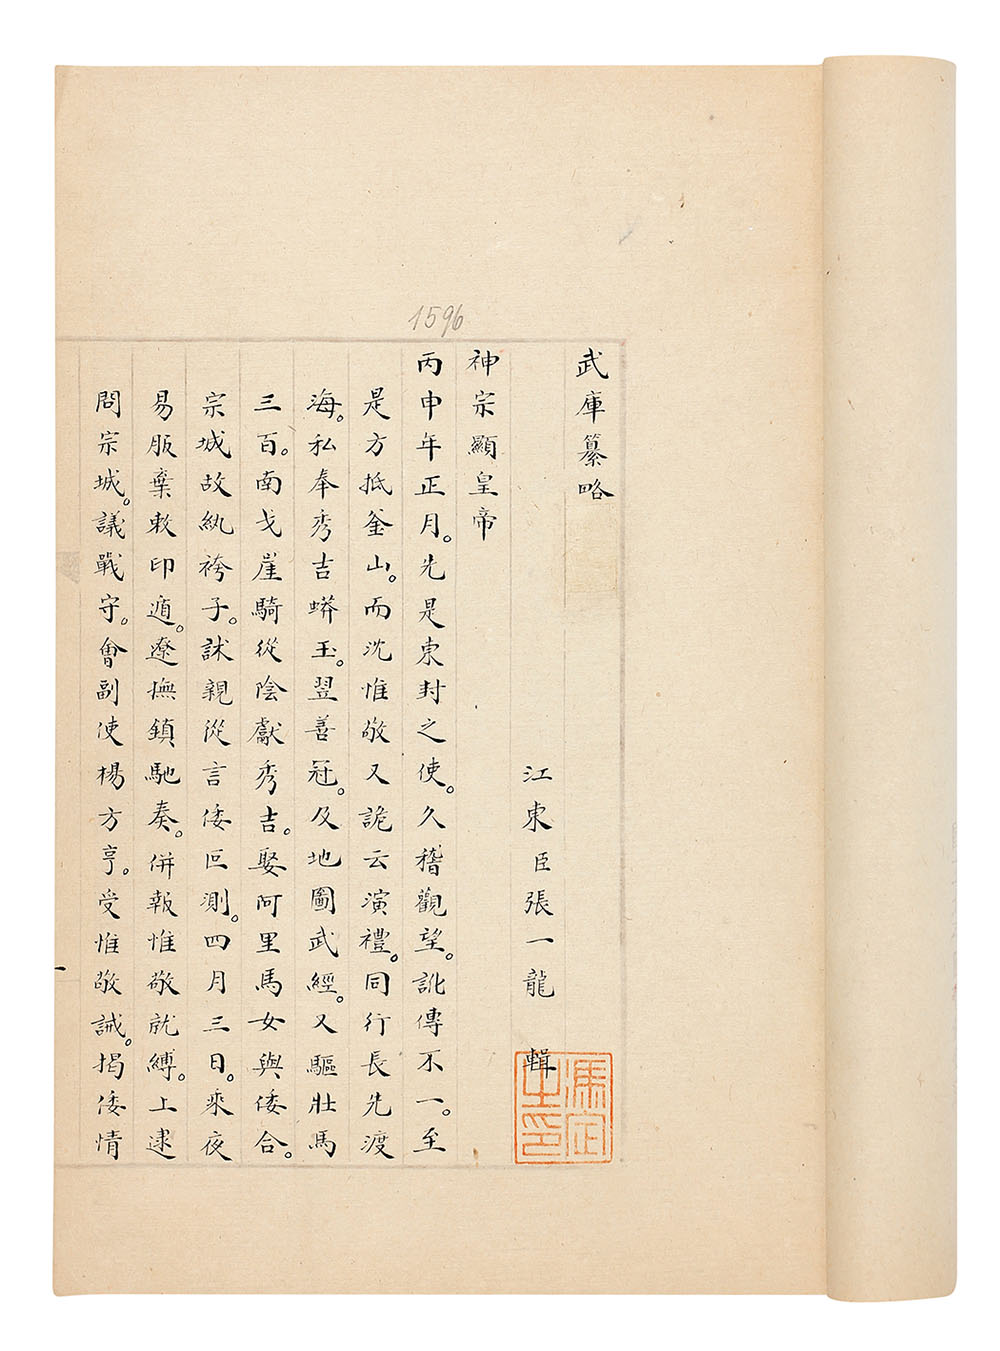 1596
武庫纂略
江東臣張一龍 輯
神宗顯皇帝
丙申年正月。先是東封之使。久稽觀望。訛傳不一。至
是方抵釜山。而沈惟敬又詭云演禮。同行長先渡
海。私奉秀吉蟒玉。翌善冠。及地圖武經。又驅壯馬
三百。南戈崖騎從陰獻秀吉。娶阿里馬女與倭合。
宗城故紈袴子。訹親從言倭叵測。四月三日。乘夜
易服棄敕印遁。遼撫鎮馳奏。併報惟敬就縛。上逮
問宗城。議戰守。會副使楊方亨。受惟敬誡。揭倭情